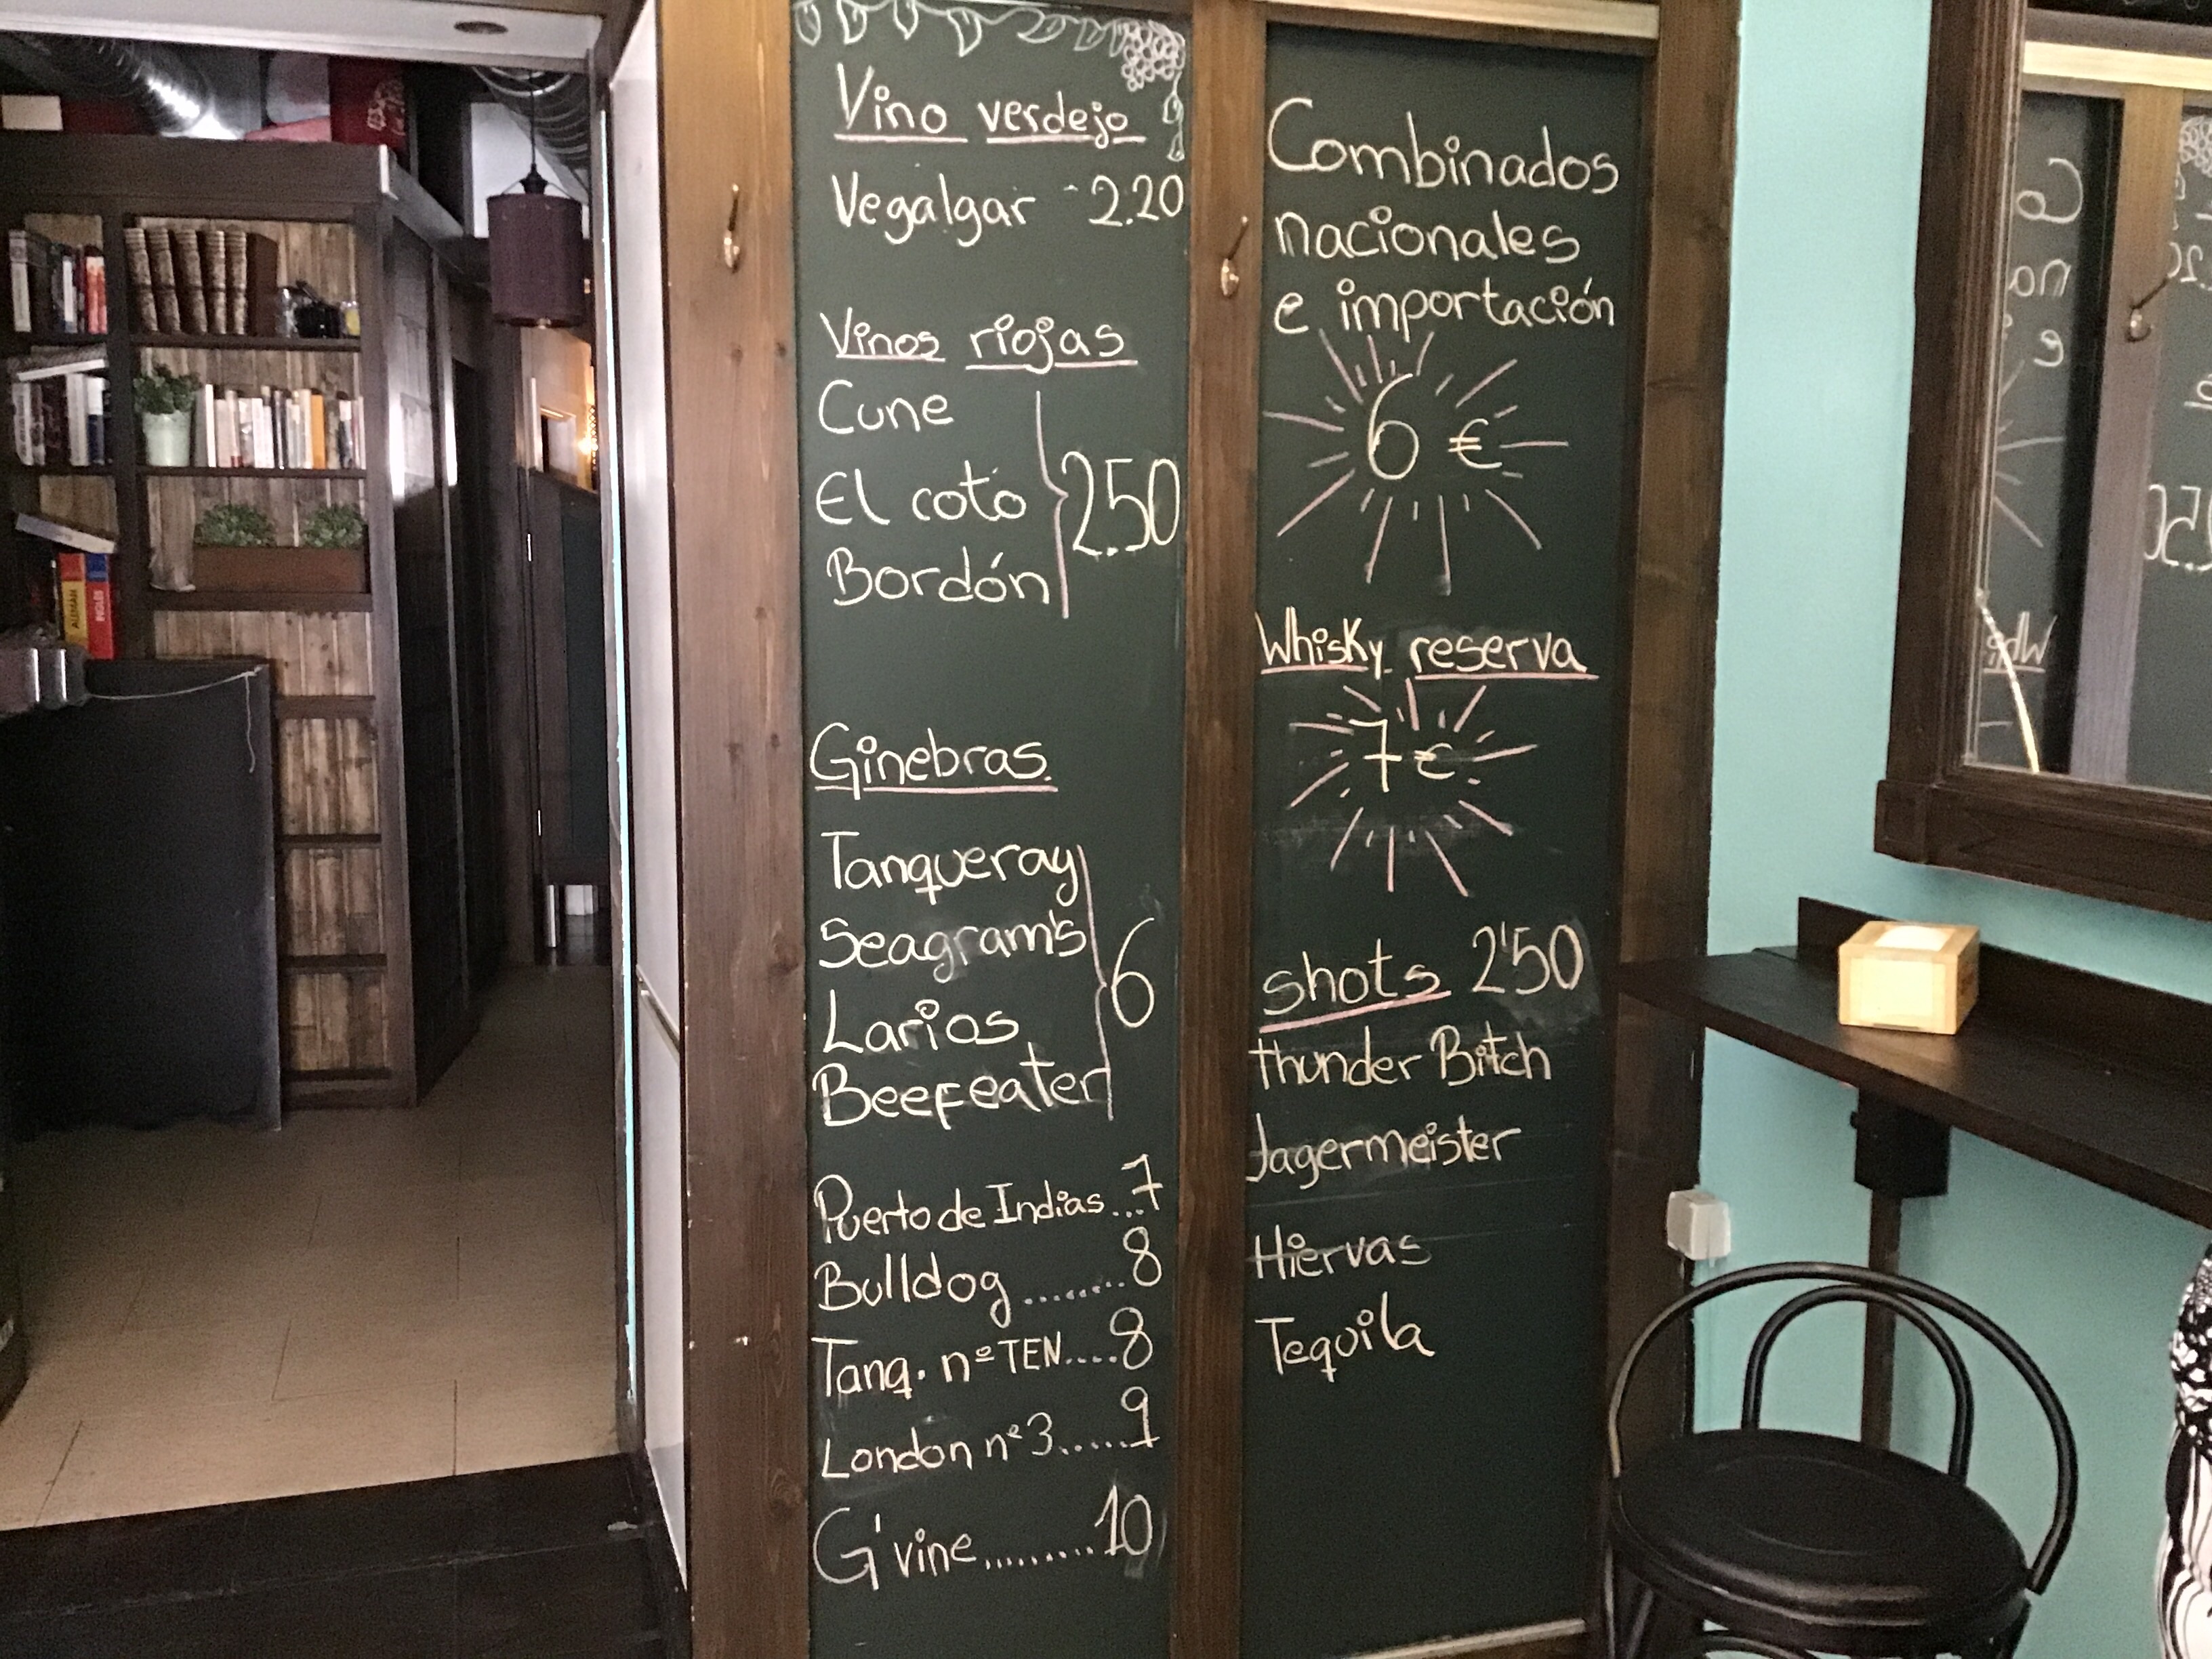 Vino verdejo
Vegalgar - 2.20
Vinos riojas
Cune
El coto
Bordón
2.50
Ginebras
Tanqueray
Seagram's
Larios
Beefeater
6
Puerto de Indias...7
Bulldog........8
Tanq. nº TEN....8
London nº 3......9
G'vine.........10
Combinados
nacionales
e importación
6 €
Whisky reserva
7 €
shots 2'50
thunder Bitch
Jagermeister
Hiervas
Tequila
ALEMÁN
INGLÉS